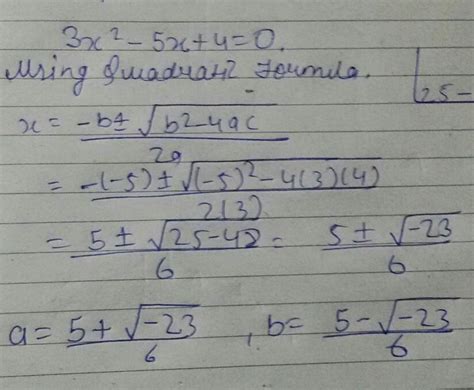 3x² - 5x + 4 = 0.
Using Quadratic Formula.
25 -
x = (-b ± √(b² - 4ac)) / 2a
= (-(-5) ± √((-5)² - 4(3)(4))) / 2(3)
= (5 ± √(25 - 48)) / 6 = (5 ± √-23) / 6
a = (5 + √-23) / 6 , b = (5 - √-23) / 6